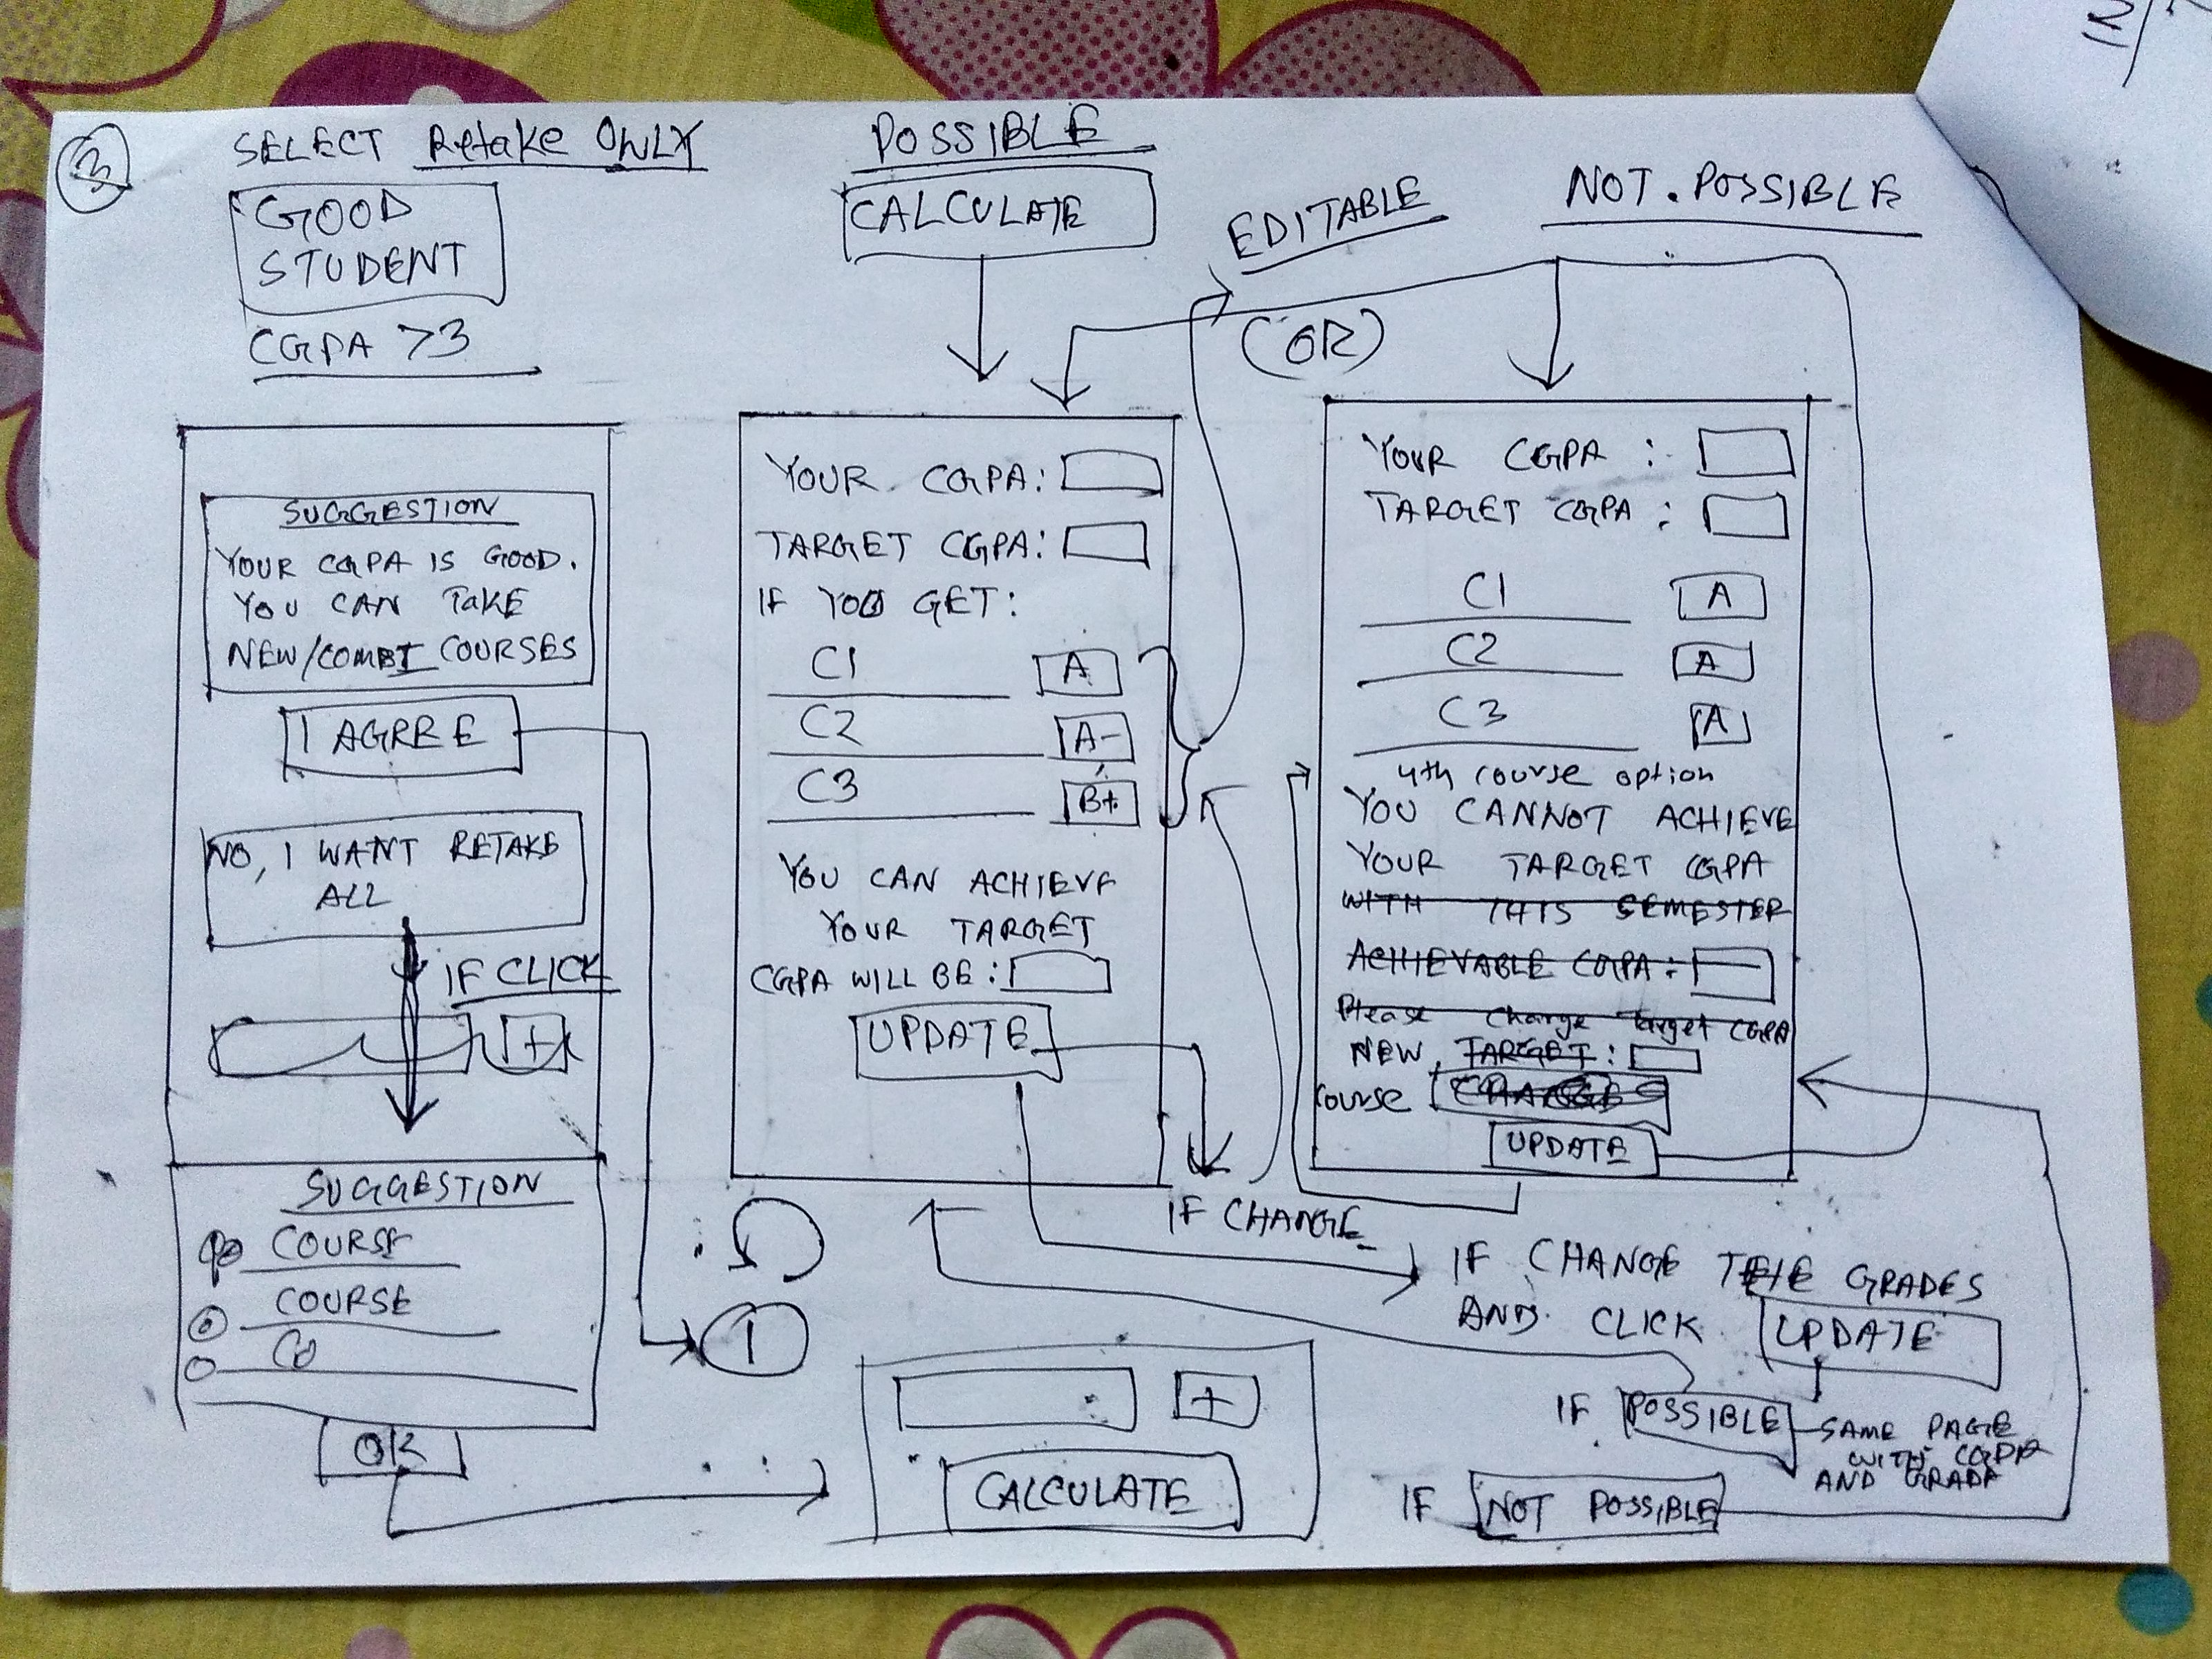 3
SELECT Retake ONLY
GOOD
STUDENT
CGPA >3
SUGGESTION
YOUR CGPA IS GOOD.
YOU CAN TAKE
NEW/COMBI COURSES
I AGREE
NO, I WANT RETAKE
ALL
IF CLICK
+
SUGGESTION
COURSE
COURSE
CO
OK
POSSIBLE
CALCULATE
EDITABLE
(OR)
YOUR CGPA:
TARGET CGPA:
IF YOU GET:
C1 A
C2 A-
C3 B+
YOU CAN ACHIEVE
YOUR TARGET
CGPA WILL BE:
UPDATE
IF CHANGE
1
+
CALCULATE
NOT.POSSIBLE
YOUR CGPA :
TARGET CGPA :
C1 A
C2 A
C3 A
4th course option
YOU CANNOT ACHIEVE
YOUR TARGET CGPA
WITH THIS SEMESTER
ACHIEVABLE CGPA:
Please change target CGPA
NEW TARGET:
course CHANGE
UPDATE
IF CHANGE THE GRADES
AND CLICK UPDATE
IF POSSIBLE SAME PAGE
WITH CGPA
AND GRADE
IF NOT POSSIBLE